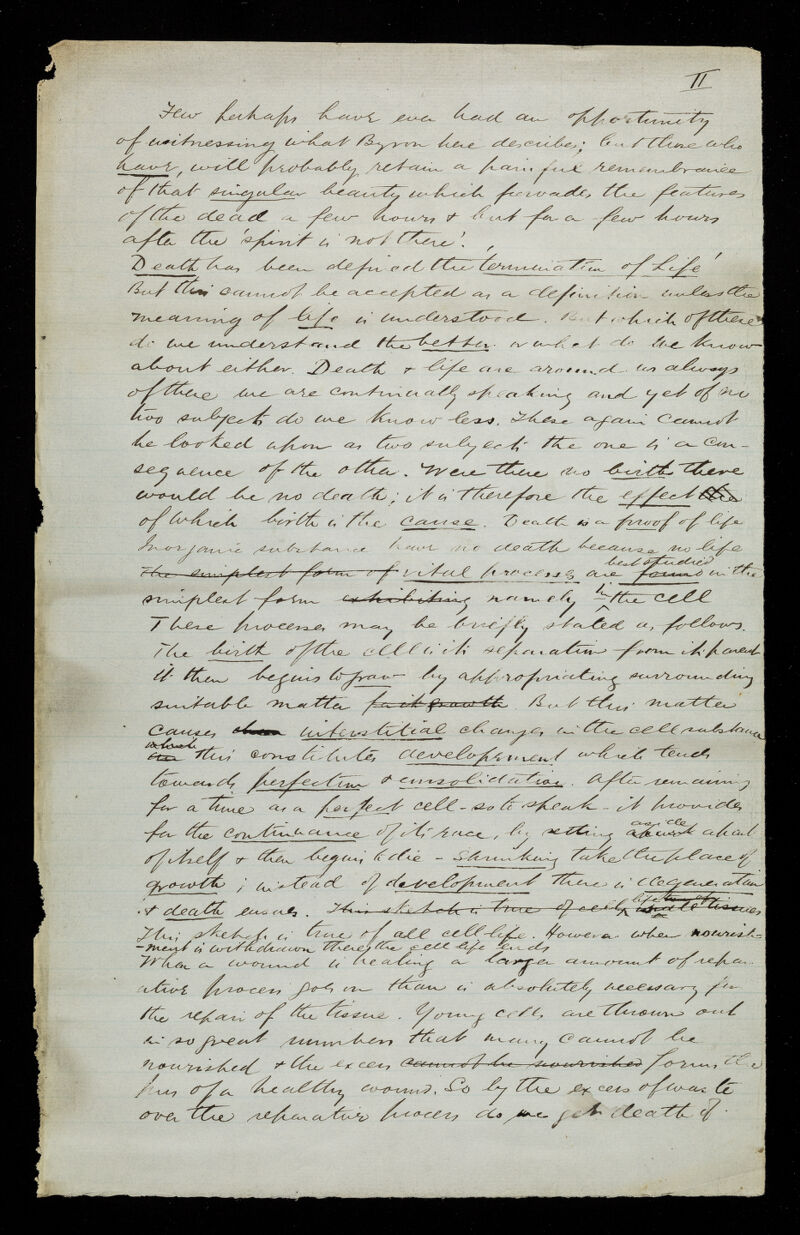 II
Few perhaps have ever had an opportunity
of witnessing what Byron here describes; but those who
have, will probably retain a painful remembrance
of that singular beauty which pervades the features
of the dead a few hours & but for a few hours
after the 'spirit is not there'.
Death has been defined the termination of Life'
But this cannot be accepted as a definition unless the
meaning of life is understood. But which of these
do we understand the better or what do we know
about either. Death & life are around us always
of these we are continually speaking and yet of no
two subjects do we know less. These again cannot
be looked upon as two subjects the one is a con-
sequence of the other. Were there no birth there
would be no death; it is therefore the effect the
of which birth is the cause. Death is a proof of life
Inorganic substances have no death because no life
best studied
The simplest form of vital processes are found in the
simplest form exhibiting namely in the cell
These processes may be briefly stated as follows.
The birth of the cell is its separation from its parent
it then begins to grow by appropriating surrounding
suitable matter for its growth. But this matter
causes interstitial changes in the cell substance
which
this constitutes development which tends
towards perfection & consolidation. After remaining
for a time as a perfect cell - so to speak - it provides
for the continuance of its race, by setting aside a part
of itself & then begins to die - Shrinking takes the place of
growth; instead of development there is degeneration
& death ensues. This sketch is true of cell life tissues
This sketch is true of all cell-life. However when nourish-
-ment is withdrawn there the cell life ends
When a wound is healing a larger amount of repar-
ative process goes on than is absolutely necessary for
the repair of the tissue. Young cells are thrown out
in so great numbers that many cannot be
nourished & the excess cannot be nourished forms the
pus of a healthy wound. So by the excess of waste
over the reparative process do we get death of